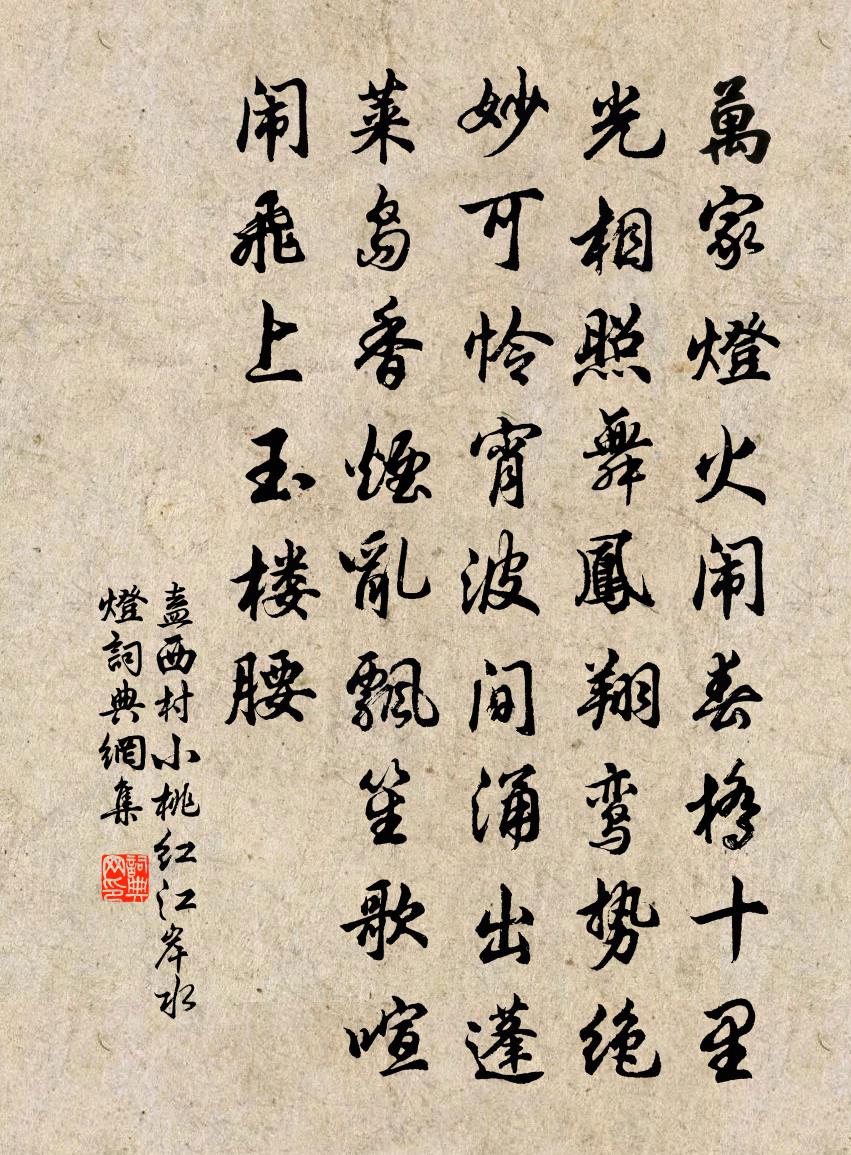 萬家燈火闹春橋十里
光相照舞鳳翔鸾势绝
妙可怜宵波间涌出蓬
莱岛香煙亂飄笙歌喧
闹飛上玉楼腰
盍西村小桃红江岸水
燈詞典網集
詞典
网印